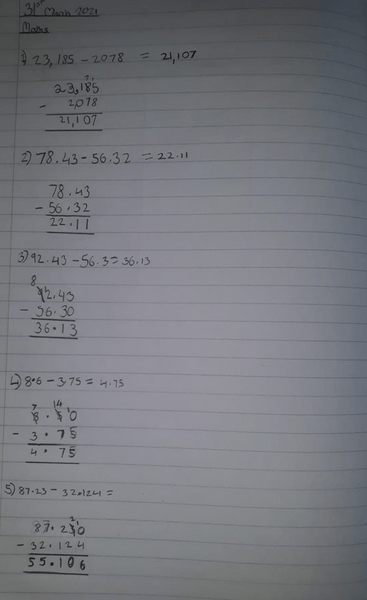 31st March 2021
Maths
1) 23,185 - 2078 = 21,107
7 1
23,185
- 2,078
21,107
2) 78.43 - 56.32 = 22.11
78.43
- 56.32
22.11
3) 92.43 - 56.3 = 36.13
8 1
92.43
- 56.30
36.13
4) 8.6 - 3.75 = 4.75
7 14 1
8.50
- 3.75
4.75
5) 87.23 - 32.124 =
2 1
87.230
- 32.124
55.106